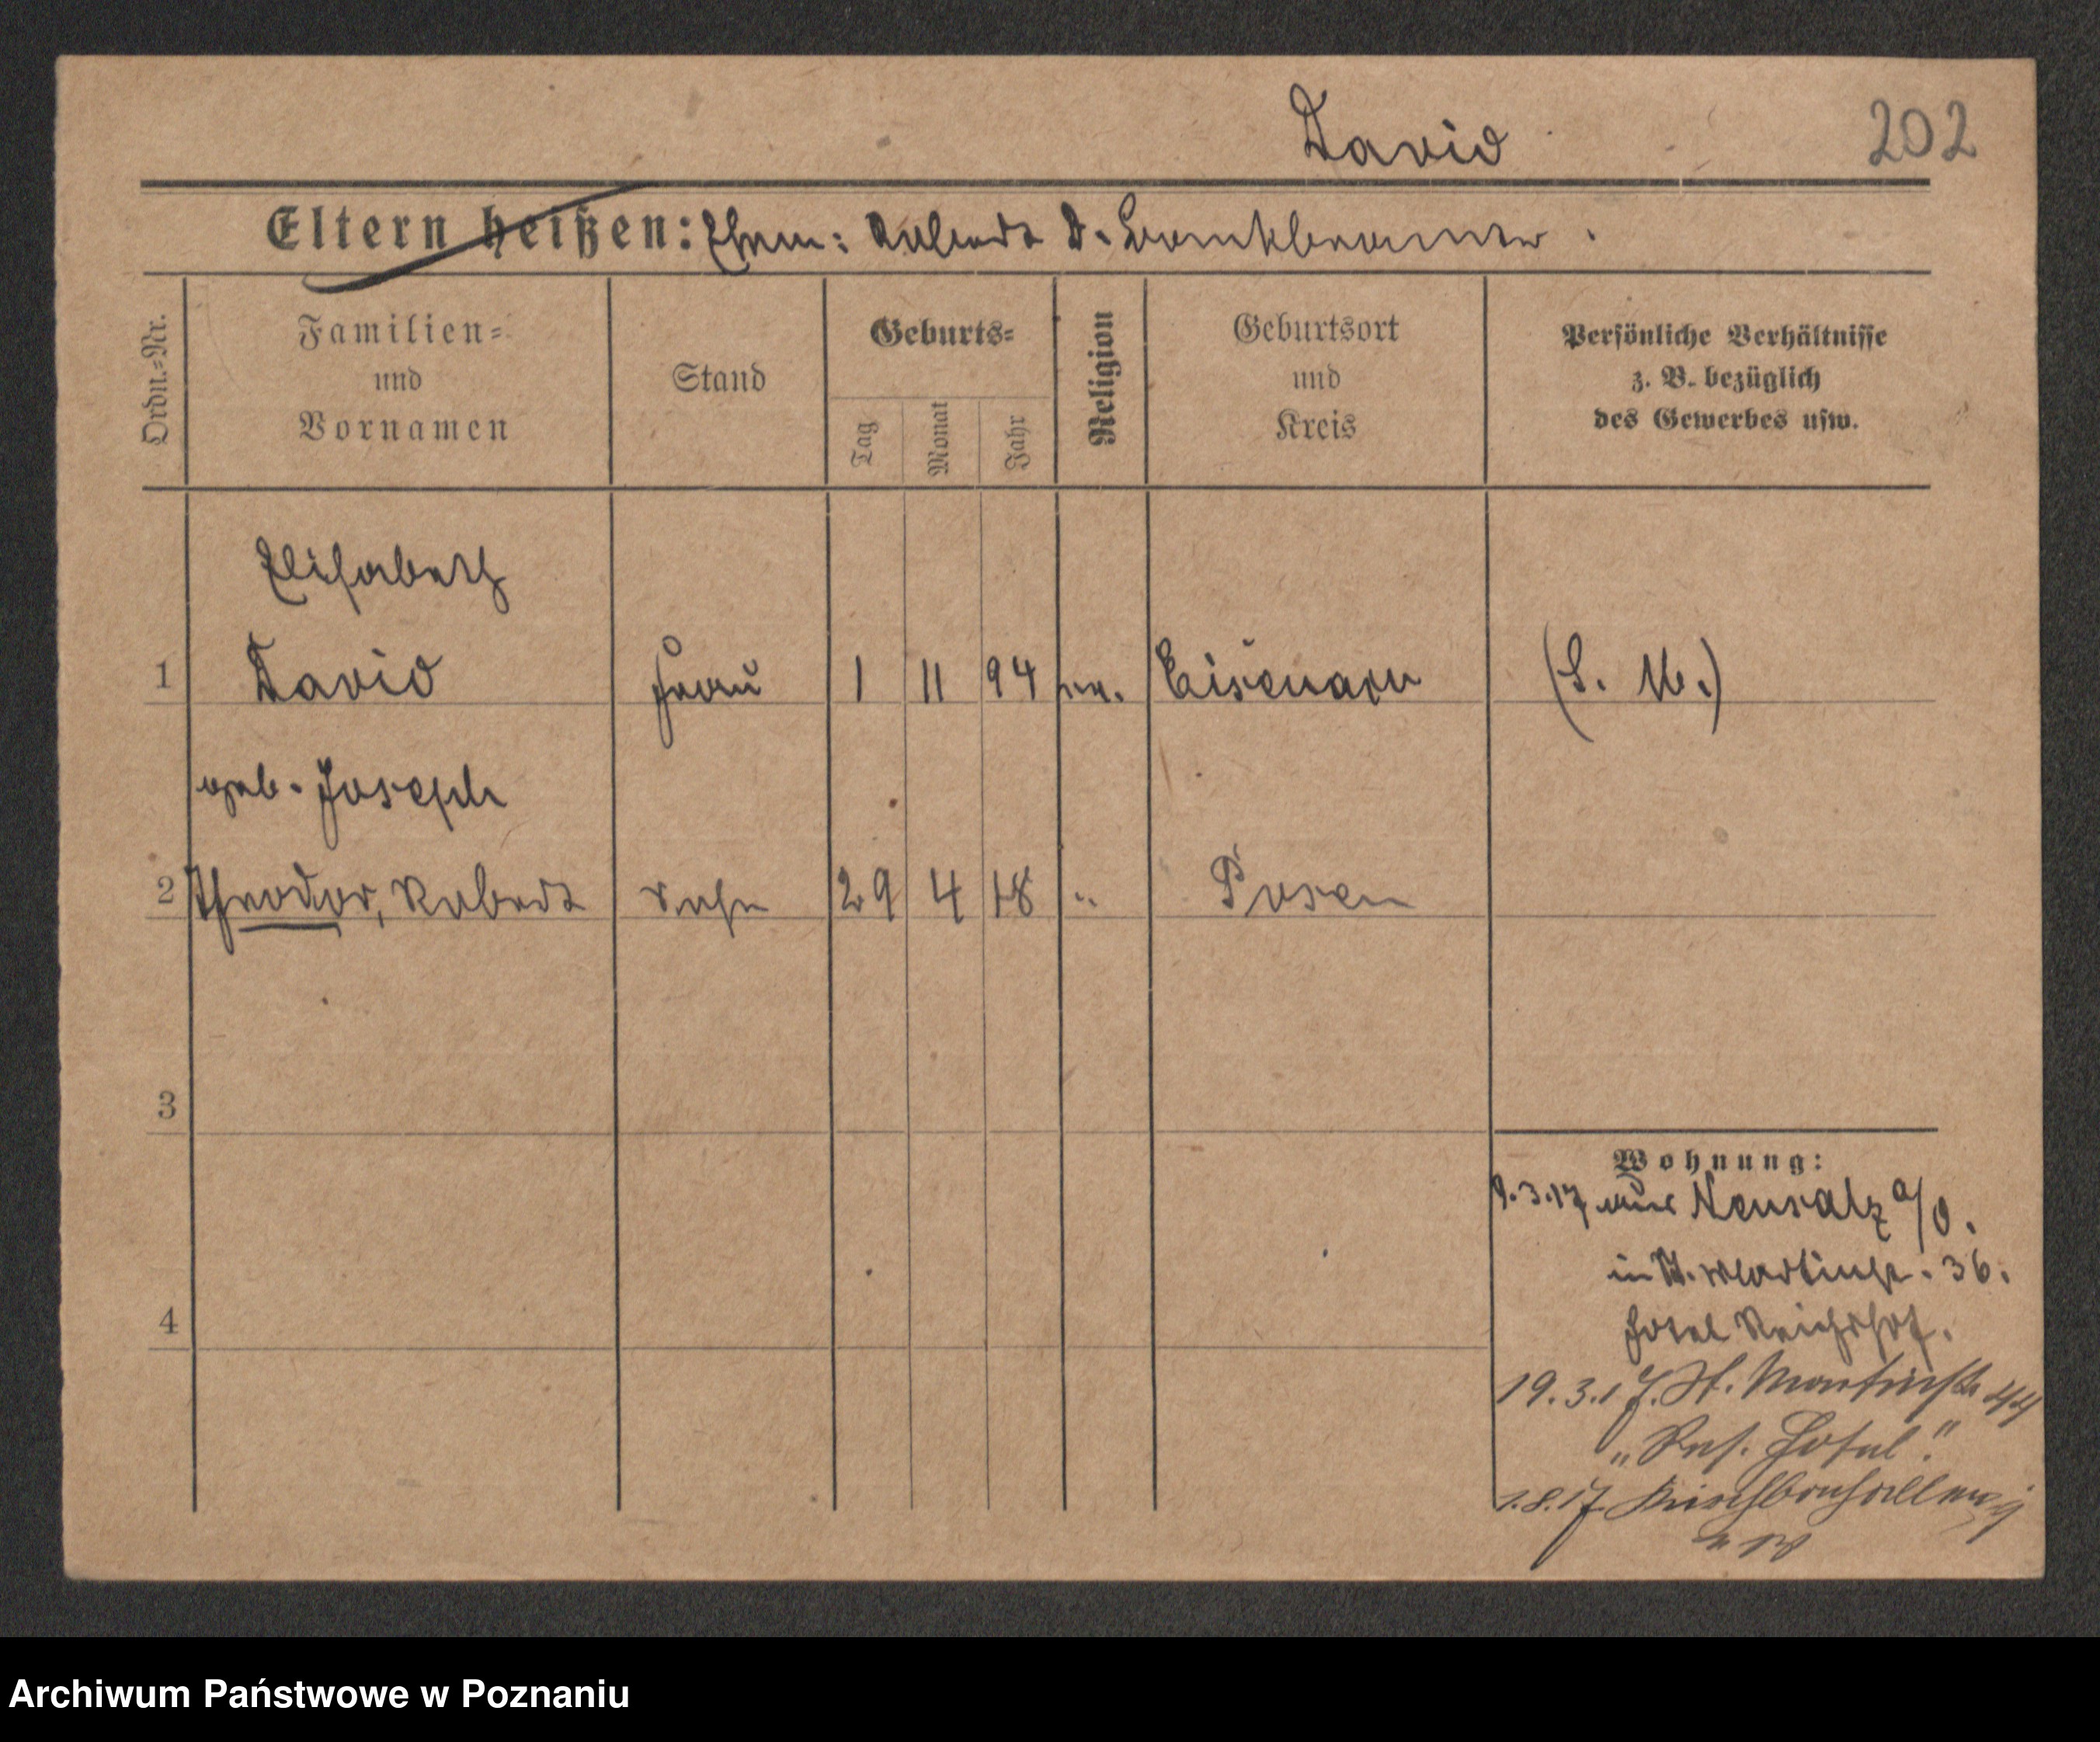 David 202
Eltern heißen: Ehem: Robert D. Bankbeamter.
Ordn.-Nr.
Familien-
und
Vornamen
Stand
Geburts-
Tag
Monat
Jahr
Religion
Geburtsort
und
Kreis
Persönliche Verhältnisse
z. B. bezüglich
des Gewerbes usw.
Elisabeth
1 David Frau 1 11 94 ev. Eisenach (S. W.)
geb. Joseph
2 Theodor, Robert Sohn 29 4 18 " Posen
3
4
Wohnung:
9.3.17 aus Neusalz a/O.
in St. Martinstr. 36.
Hotel Reichshof.
19.3.17. St. Martinstr 44
"Ref. Hotel."
1.8.17 Kirschbaumallee
Archiwum Państwowe w Poznaniu